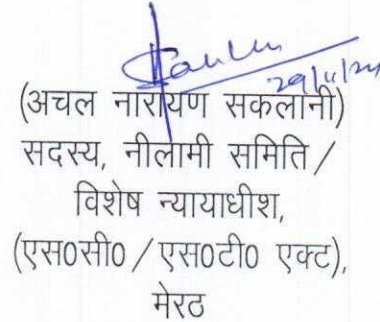 29/11/24
(अचल नारायण सकलानी)
सदस्य, नीलामी समिति /
विशेष न्यायाधीश,
(एस0सी0 / एस0टी0 एक्ट),
मेरठ